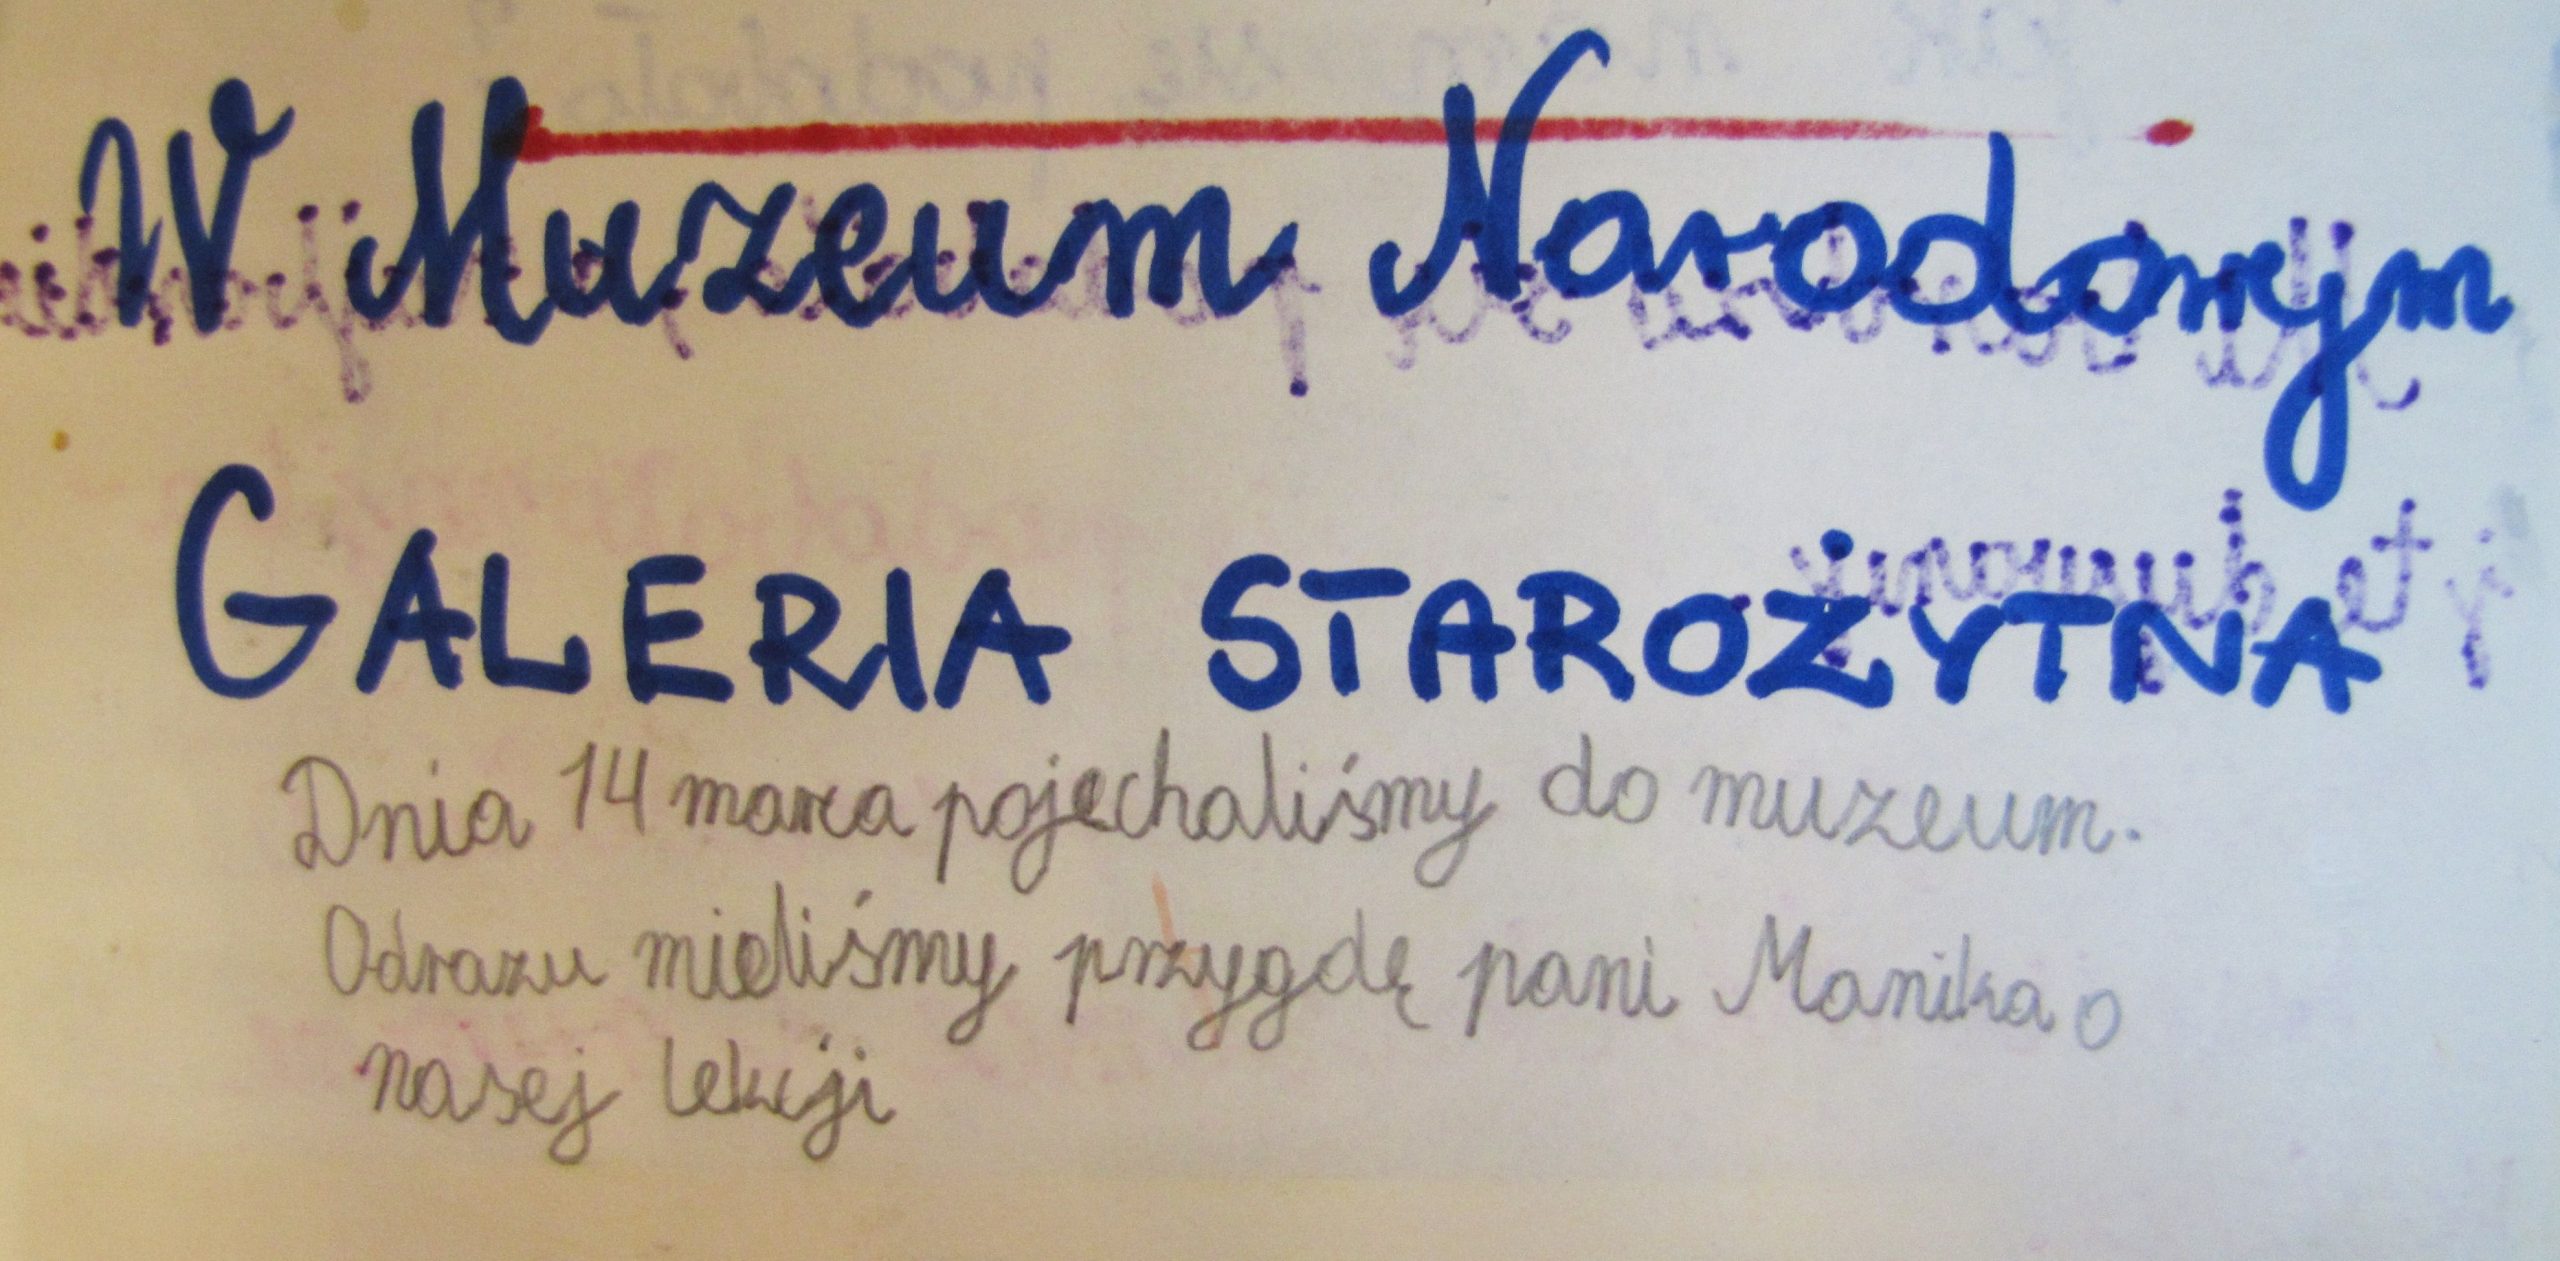 W Muzeum Narodowym
GALERIA STAROŻYTNA
Dnia 14 marca pojechaliśmy do muzeum.
Odrazu mieliśmy przygdę pani Manika o
nasej lekcji